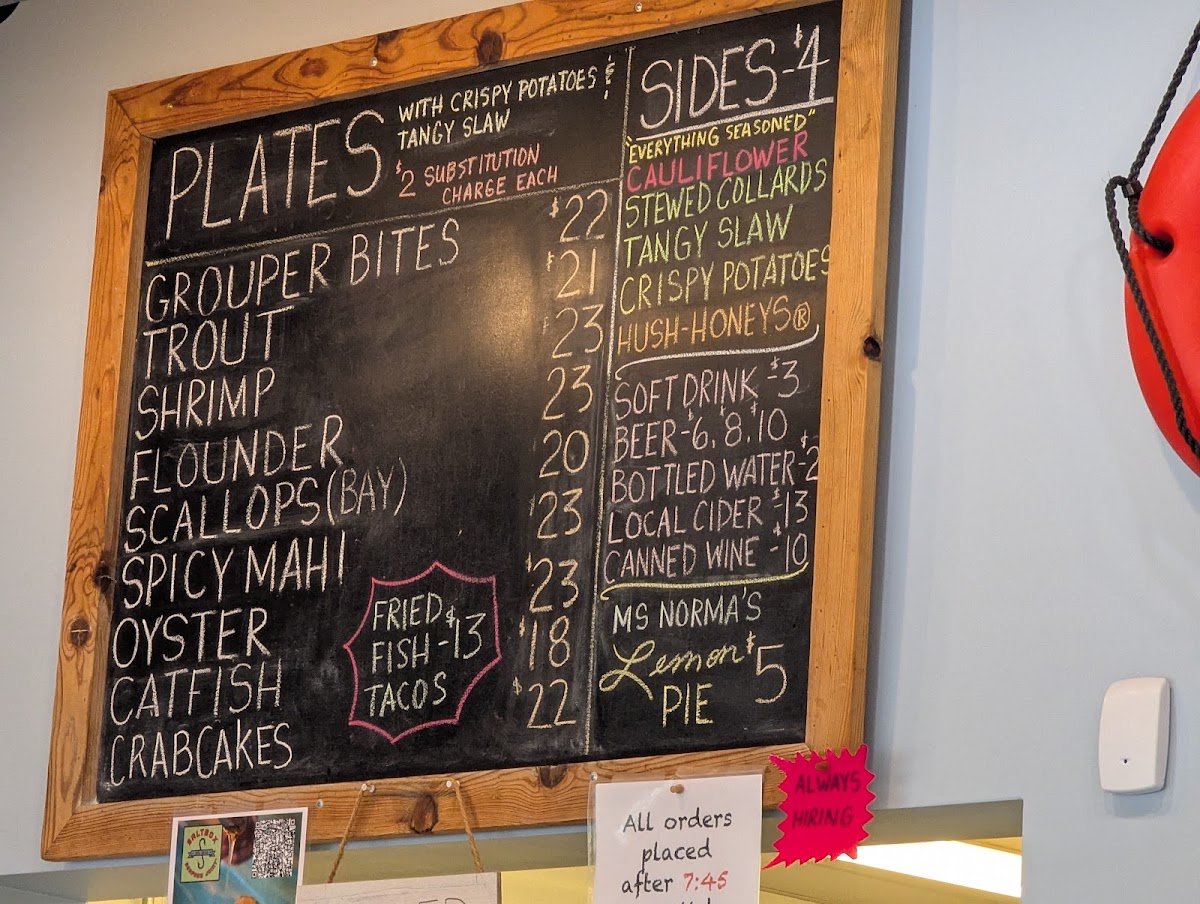 PLATES WITH CRISPY POTATOES &
TANGY SLAW
$2 SUBSTITUTION
CHARGE EACH
GROUPER BITES $22
TROUT $21
SHRIMP 23
FLOUNDER 23
SCALLOPS (BAY) 20
SPICY MAHI $23
OYSTER $23
CATFISH $18
CRABCAKES $22
FRIED
FISH - $13
TACOS
SIDES - $4
"EVERYTHING SEASONED"
CAULIFLOWER
STEWED COLLARDS
TANGY SLAW
CRISPY POTATOES
HUSH-HONEYS®
SOFT DRINK - $3
BEER - $6, $8, $10
BOTTLED WATER - $2
LOCAL CIDER - $13
CANNED WINE - $10
MS NORMA'S
Lemon $5
PIE
SALTBOX
SEAFOOD JOINT
All orders
placed
after 7:45
ALWAYS
HIRING